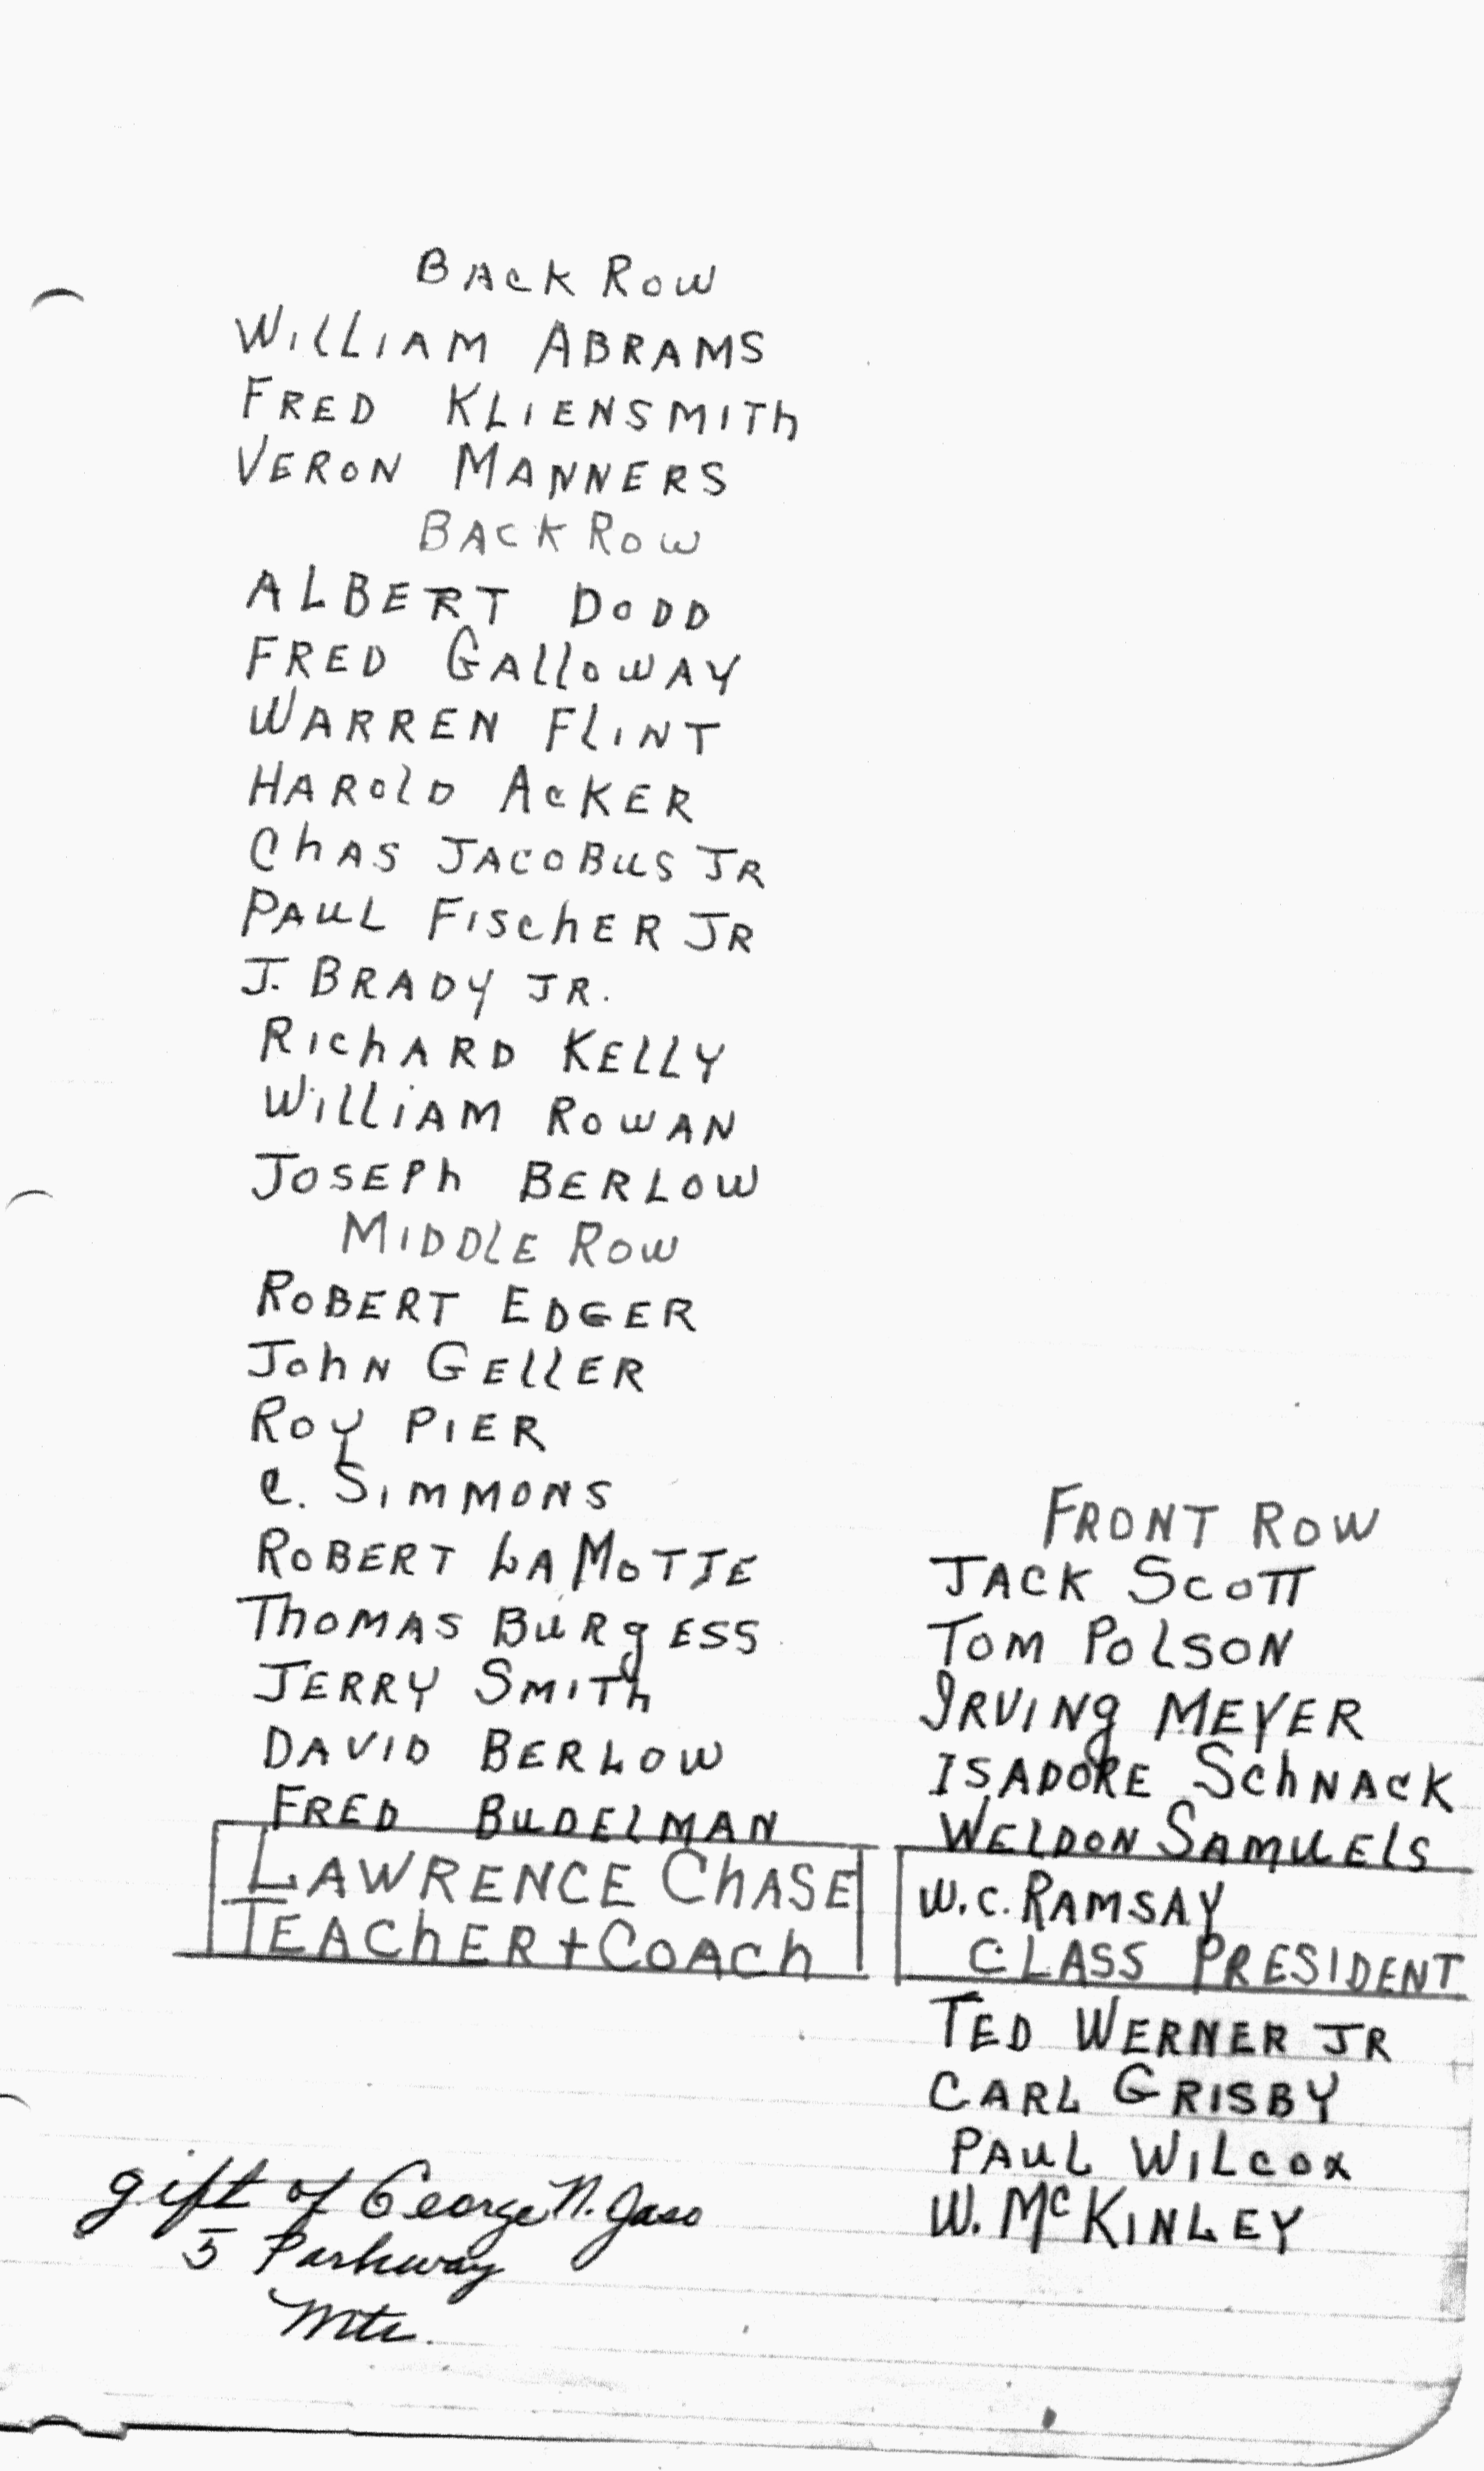 BACK ROW
WILLIAM ABRAMS
FRED KLIENSMITH
VERON MANNERS
BACK ROW
ALBERT DODD
FRED GALLOWAY
WARREN FLINT
HAROLD ACKER
CHAS JACOBUS JR
PAUL FISCHER JR
J. BRADY JR.
RICHARD KELLY
WILLIAM ROWAN
JOSEPH BERLOW
MIDDLE ROW
ROBERT EDGER
JOHN GELLER
ROY PIER
C. SIMMONS
ROBERT LAMOTTE
THOMAS BURGESS
JERRY SMITH
DAVID BERLOW
FRED BUDELMAN
LAWRENCE CHASE
TEACHER + COACH
FRONT ROW
JACK SCOTT
TOM POLSON
IRVING MEYER
ISADORE SCHNACK
WELDON SAMUELS
W.C. RAMSAY
CLASS PRESIDENT
TED WERNER JR
CARL GRISBY
PAUL WILCOX
W. McKINLEY
gift of George N. Jass
5 Parkway
Mtc.